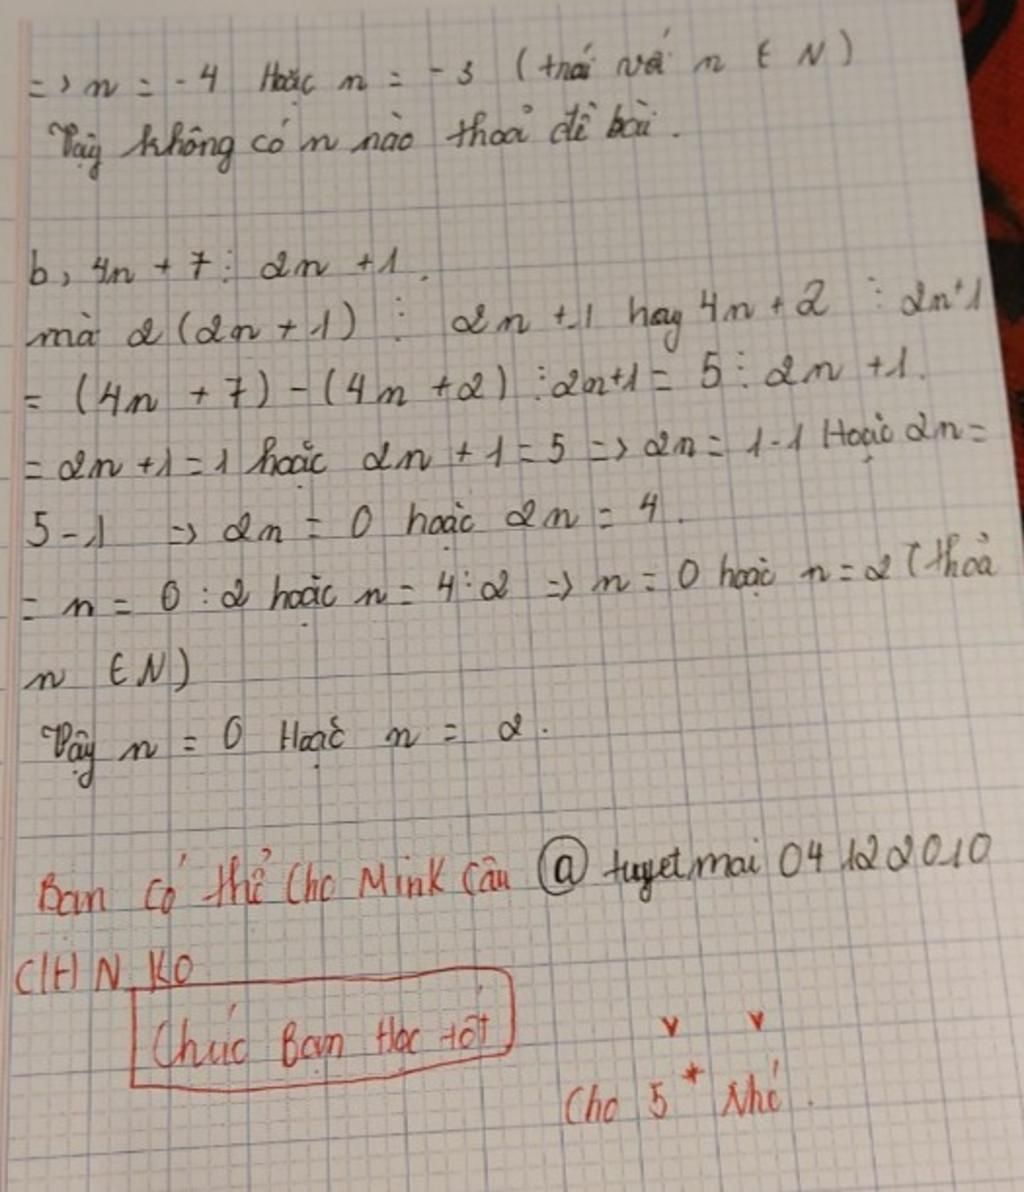 => n = -4 Hoặc n = -3 (trái với n ∈ N)
Vậy không có n nào thoả đề bài.
b, 4n + 7 ⋮ 2n + 1.
mà 2(2n + 1) ⋮ 2n + 1 hay 4n + 2 ⋮ 2n + 1
= (4n + 7) - (4n + 2) ⋮ 2n + 1 = 5 ⋮ 2n + 1.
= 2n + 1 = 1 hoặc 2n + 1 = 5 => 2n = 1 - 1 Hoặc 2n =
5 - 1 => 2n = 0 hoặc 2n = 4.
= n = 0 : 2 hoặc n = 4 : 2 => n = 0 hoặc n = 2 (thoả
n ∈ N)
Vậy n = 0 Hoặc n = 2.
Bạn có thể Cho Mink Câu @ tuyetmai 04122010
C(t) N KO
Chúc Bạn Học tốt
Cho 5* Nhé.